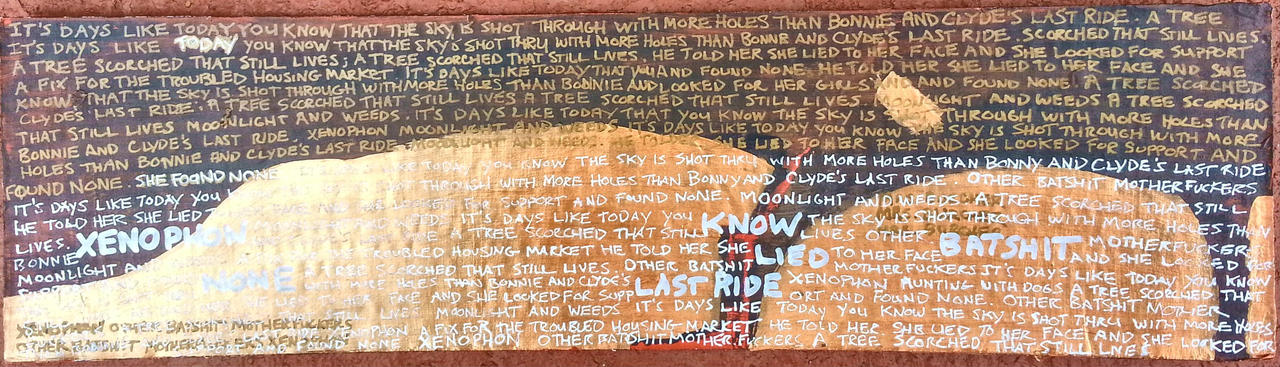 IT'S DAYS LIKE TODAY YOU KNOW THAT THE SKY IS SHOT THROUGH WITH MORE HOLES THAN BONNIE AND CLYDE'S LAST RIDE. A TREE
IT'S DAYS LIKE TODAY YOU KNOW THAT THE SKY'S SHOT THRU WITH MORE HOLES THAN BONNIE AND CLYDE'S LAST RIDE. SCORCHED THAT STILL LIVES.
A TREE SCORCHED THAT STILL LIVES; A TREE SCORCHED THAT STILL LIVES. HE TOLD HER SHE LIED TO HER FACE AND SHE LOOKED FOR SUPPORT
A FIX FOR THE TROUBLED HOUSING MARKET. IT'S DAYS LIKE TODAY THAT YOU AND FOUND NONE. HE TOLD HER SHE LIED TO HER FACE AND SHE
KNOW THAT THE SKY IS SHOT THROUGH WITH MORE HOLES THAN BONNIE AND LOOKED FOR HER GIRLS AND FOUND NONE. A TREE SCORCHED
CLYDE'S LAST RIDE. A TREE SCORCHED THAT STILL LIVES A TREE SCORCHED THAT STILL LIVES MOONLIGHT AND WEEDS A TREE SCORCHED
THAT STILL LIVES MOONLIGHT AND WEEDS. IT'S DAYS LIKE TODAY THAT YOU KNOW THE SKY IS SHOT THROUGH WITH MORE HOLES THAN
BONNIE AND CLYDE'S LAST RIDE. XENOPHON MOONLIGHT AND WEEDS IT'S DAYS LIKE TODAY YOU KNOW THE SKY IS SHOT THROUGH WITH MORE
HOLES THAN BONNIE AND CLYDE'S LAST RIDE. MOONLIGHT AND WEEDS. HE TOLD HER SHE LIED TO HER FACE AND SHE LOOKED FOR SUPPORT AND
FOUND NONE. SHE FOUND NONE TODAY YOU KNOW THE SKY IS SHOT THRU WITH MORE HOLES THAN BONNY AND CLYDE'S LAST RIDE
IT'S DAYS LIKE TODAY YOU THROUGH WITH MORE HOLES THAN BONNY AND CLYDE'S LAST RIDE. OTHER BATSHIT MOTHERFUCKERS
HE TOLD HER SHE LIED FOR SUPPORT AND FOUND NONE. MOONLIGHT AND WEEDS. A TREE SCORCHED THAT STILL
LIVES. XENOPHON IT'S DAYS LIKE TODAY YOU KNOW THE SKY IS SHOT THROUGH WITH MORE HOLES THAN
BONNIE A TREE SCORCHED THAT STILL LIVES OTHER BATSHIT MOTHERFUCKER
MOONLIGHT AND TROUBLED HOUSING MARKET HE TOLD HER SHE LIED TO HER FACE AND SHE LOOKED FOR
NONE A TREE SCORCHED THAT STILL LIVES. OTHER BATSHIT MOTHERFUCKERS IT'S DAYS LIKE TODAY YOU KNOW
WITH MORE HOLES THAN BONNIE AND CLYDE'S LAST RIDE XENOPHON HUNTING WITH DOGS A TREE SCORCHED THAT
SHE LIED TO HER FACE AND SHE LOOKED FOR SUPP ORT AND FOUND NONE. OTHER BATSHIT MOTHER
THAT STILL LIVES MOONLIGHT AND WEEDS IT'S DAYS LIKE TODAY YOU KNOW THE SKY IS SHOT THRU WITH MORE HOLES
XENOPHON OTHER BATSHIT MOTHERFUCKERS XENOPHON A FIX FOR THE TROUBLED HOUSING MARKET HE TOLD HER SHE LIED TO HER FACE AND
OTHER BATSHIT AND FOUND NONE XENOPHON OTHER BATSHIT MOTHER FUCKERS. A TREE SCORCHED THAT STILL LIVES SHE LOOKED FOR